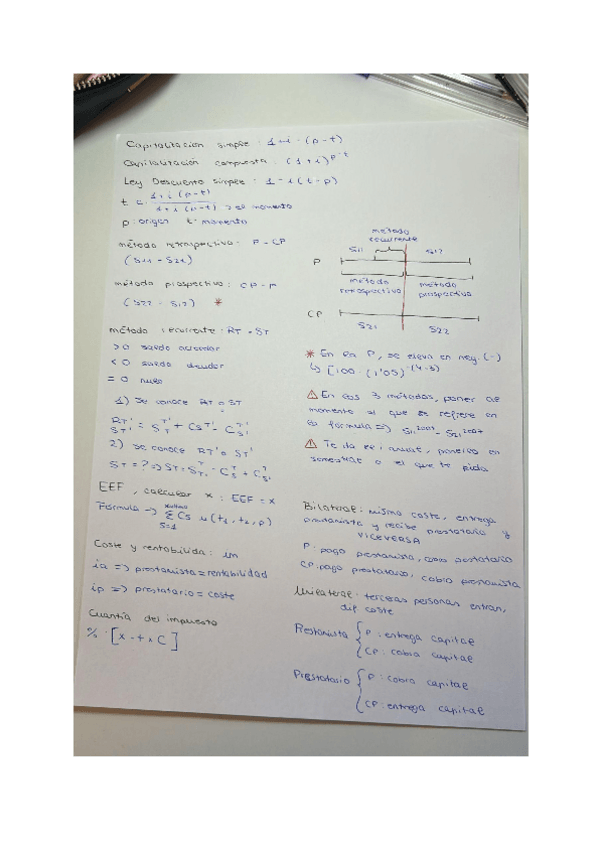 Capitalización simple: 1+i·(p-t)
Capitalización compuesta: (1+i)^p-t
Ley Descuento simple: 1-i(t-p)
1+i(p-t)
1+i(p-t) => el momento
p: origen t: momento
método retrospectivo: P-CP
(S11 - S21)
método prospectivo: CP-P
(S22 - S12) *
método recurrente: RT = ST
>0 saldo acreedor
<0 saldo deudor
=0 nulo
1) Se conoce
2) Se conoce
EEF, calcular x: EEF=x
Fórmula ->
Coste y rentabilida: im
ia => prestamista = rentabilidad
ip => prestatario = coste
Cuantía del impuesto
%·[x-t×C]
método
recurrente
S11
S12
P
método
retrospectivo
método
prospectivo
CP
S21
S22
* En en P, se eleva en neg. (-)
↳ [100·(1'05)^-(4-3)
⚠ En los 3 métodos, poner al
momento al que se refiere en
la fórmula =>
⚠ Te da el i anual, ponerlo en
semestral o el que te pida
Bilateral: mismo coste, entrega
prestamista y recibe prestatario y
VICEVERSA
P: pago prestamista, cobro prestatario
CP: pago prestatario, cobro prestamista
Unilateral: terceras personas entran,
dif coste
Prestamista { P: entrega capital
CP: cobra capital
Prestatario { P: cobra capital
CP: entrega capital